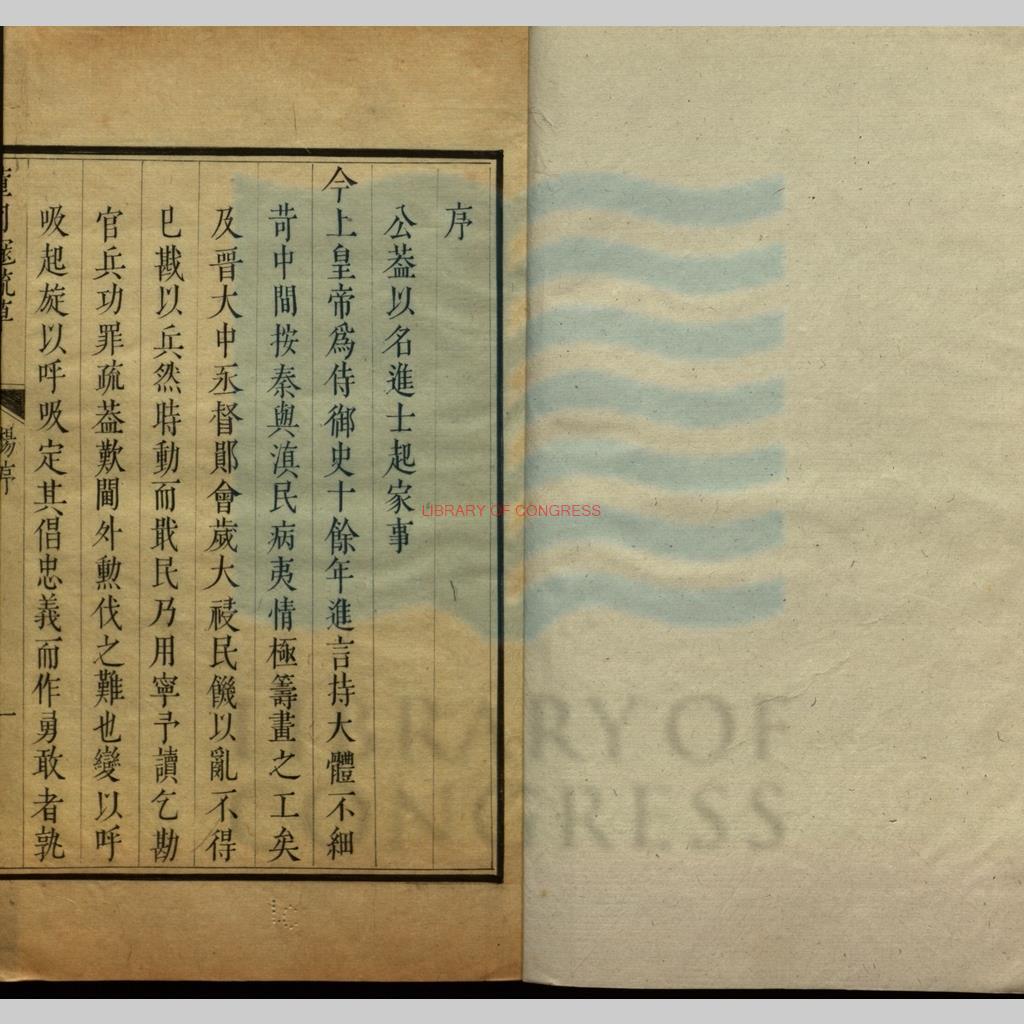 序
公葢以名進士起家事
今上皇帝爲侍御史十餘年進言持大體不細
苛中間按秦與滇民病夷情極籌畫之工矣
及晉大中丞督鄖會歲大祲民饑以亂不得
已戡以兵然時動而戢民乃用寧予讀乞勘
官兵功罪疏葢歎閫外勲伐之難也變以呼
吸起旋以呼吸定其倡忠義而作勇敢者孰
楊序
一
LIBRARY OF CONGRESS
LIBRARY OF
CONGRESS